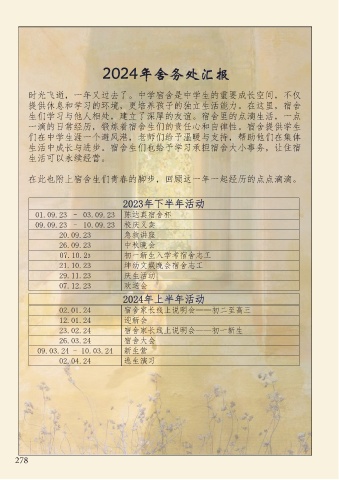 2024年舍务处汇报
时光飞逝，一年又过去了。中学宿舍是中学生的重要成长空间，不仅
提供休息和学习的环境，更培养孩子的独立生活能力。在这里，宿舍
生们学习与他人相处，建立了深厚的友谊。宿舍里的点滴生活，一点
一滴的日常经历，锻炼着宿舍生们的责任心和自律性。宿舍提供学生
们在中学生涯一个避风港，老师们给予温暖与支持，帮助他们在集体
生活中成长与进步。宿舍生们也给予学习承担宿舍大小事务，让住宿
生活可以永续经营。
在此也附上宿舍生们青春的脚步，回顾这一年一起经历的点点滴滴。
2023年下半年活动
01.09.23 - 03.09.23 陈达真宿舍杯
09.09.23 - 10.09.23 校庆义卖
20.09.23 急救讲座
26.09.23 中秋晚会
07.10.23 初一新生入学考宿舍志工
21.10.23 津幼文藏晚会宿舍志工
29.11.23 庆生活动
07.12.23 欢送会
2024年上半年活动
02.01.24 宿舍家长线上说明会——初二至高三
12.01.24 迎新会
23.02.24 宿舍家长线上说明会——初一新生
26.03.24 宿舍大会
09.03.24 - 10.03.24 新生营
02.04.24 逃生演习
278